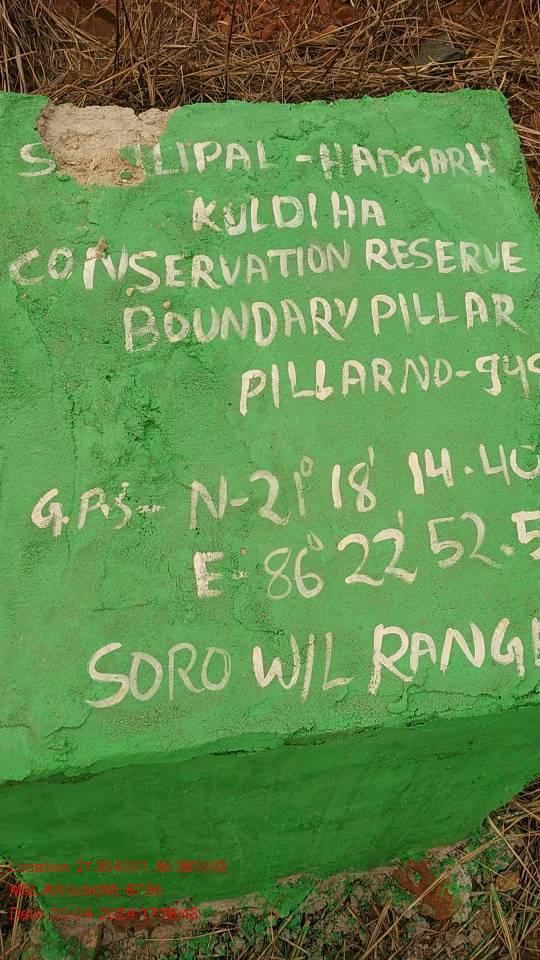 S LIPAL - HADGARH
KULDIHA
CONSERVATION RESERVE
BOUNDARY PILLAR
PILLAR NO-949
G.P.S- N-21° 18' 14.40
E- 86° 22' 52.5
SORO W/L RANGE
Location: 21.304001, 86.381093
MSL Altitude(M): 87.56
Date: 20-04-2024 17:18:48